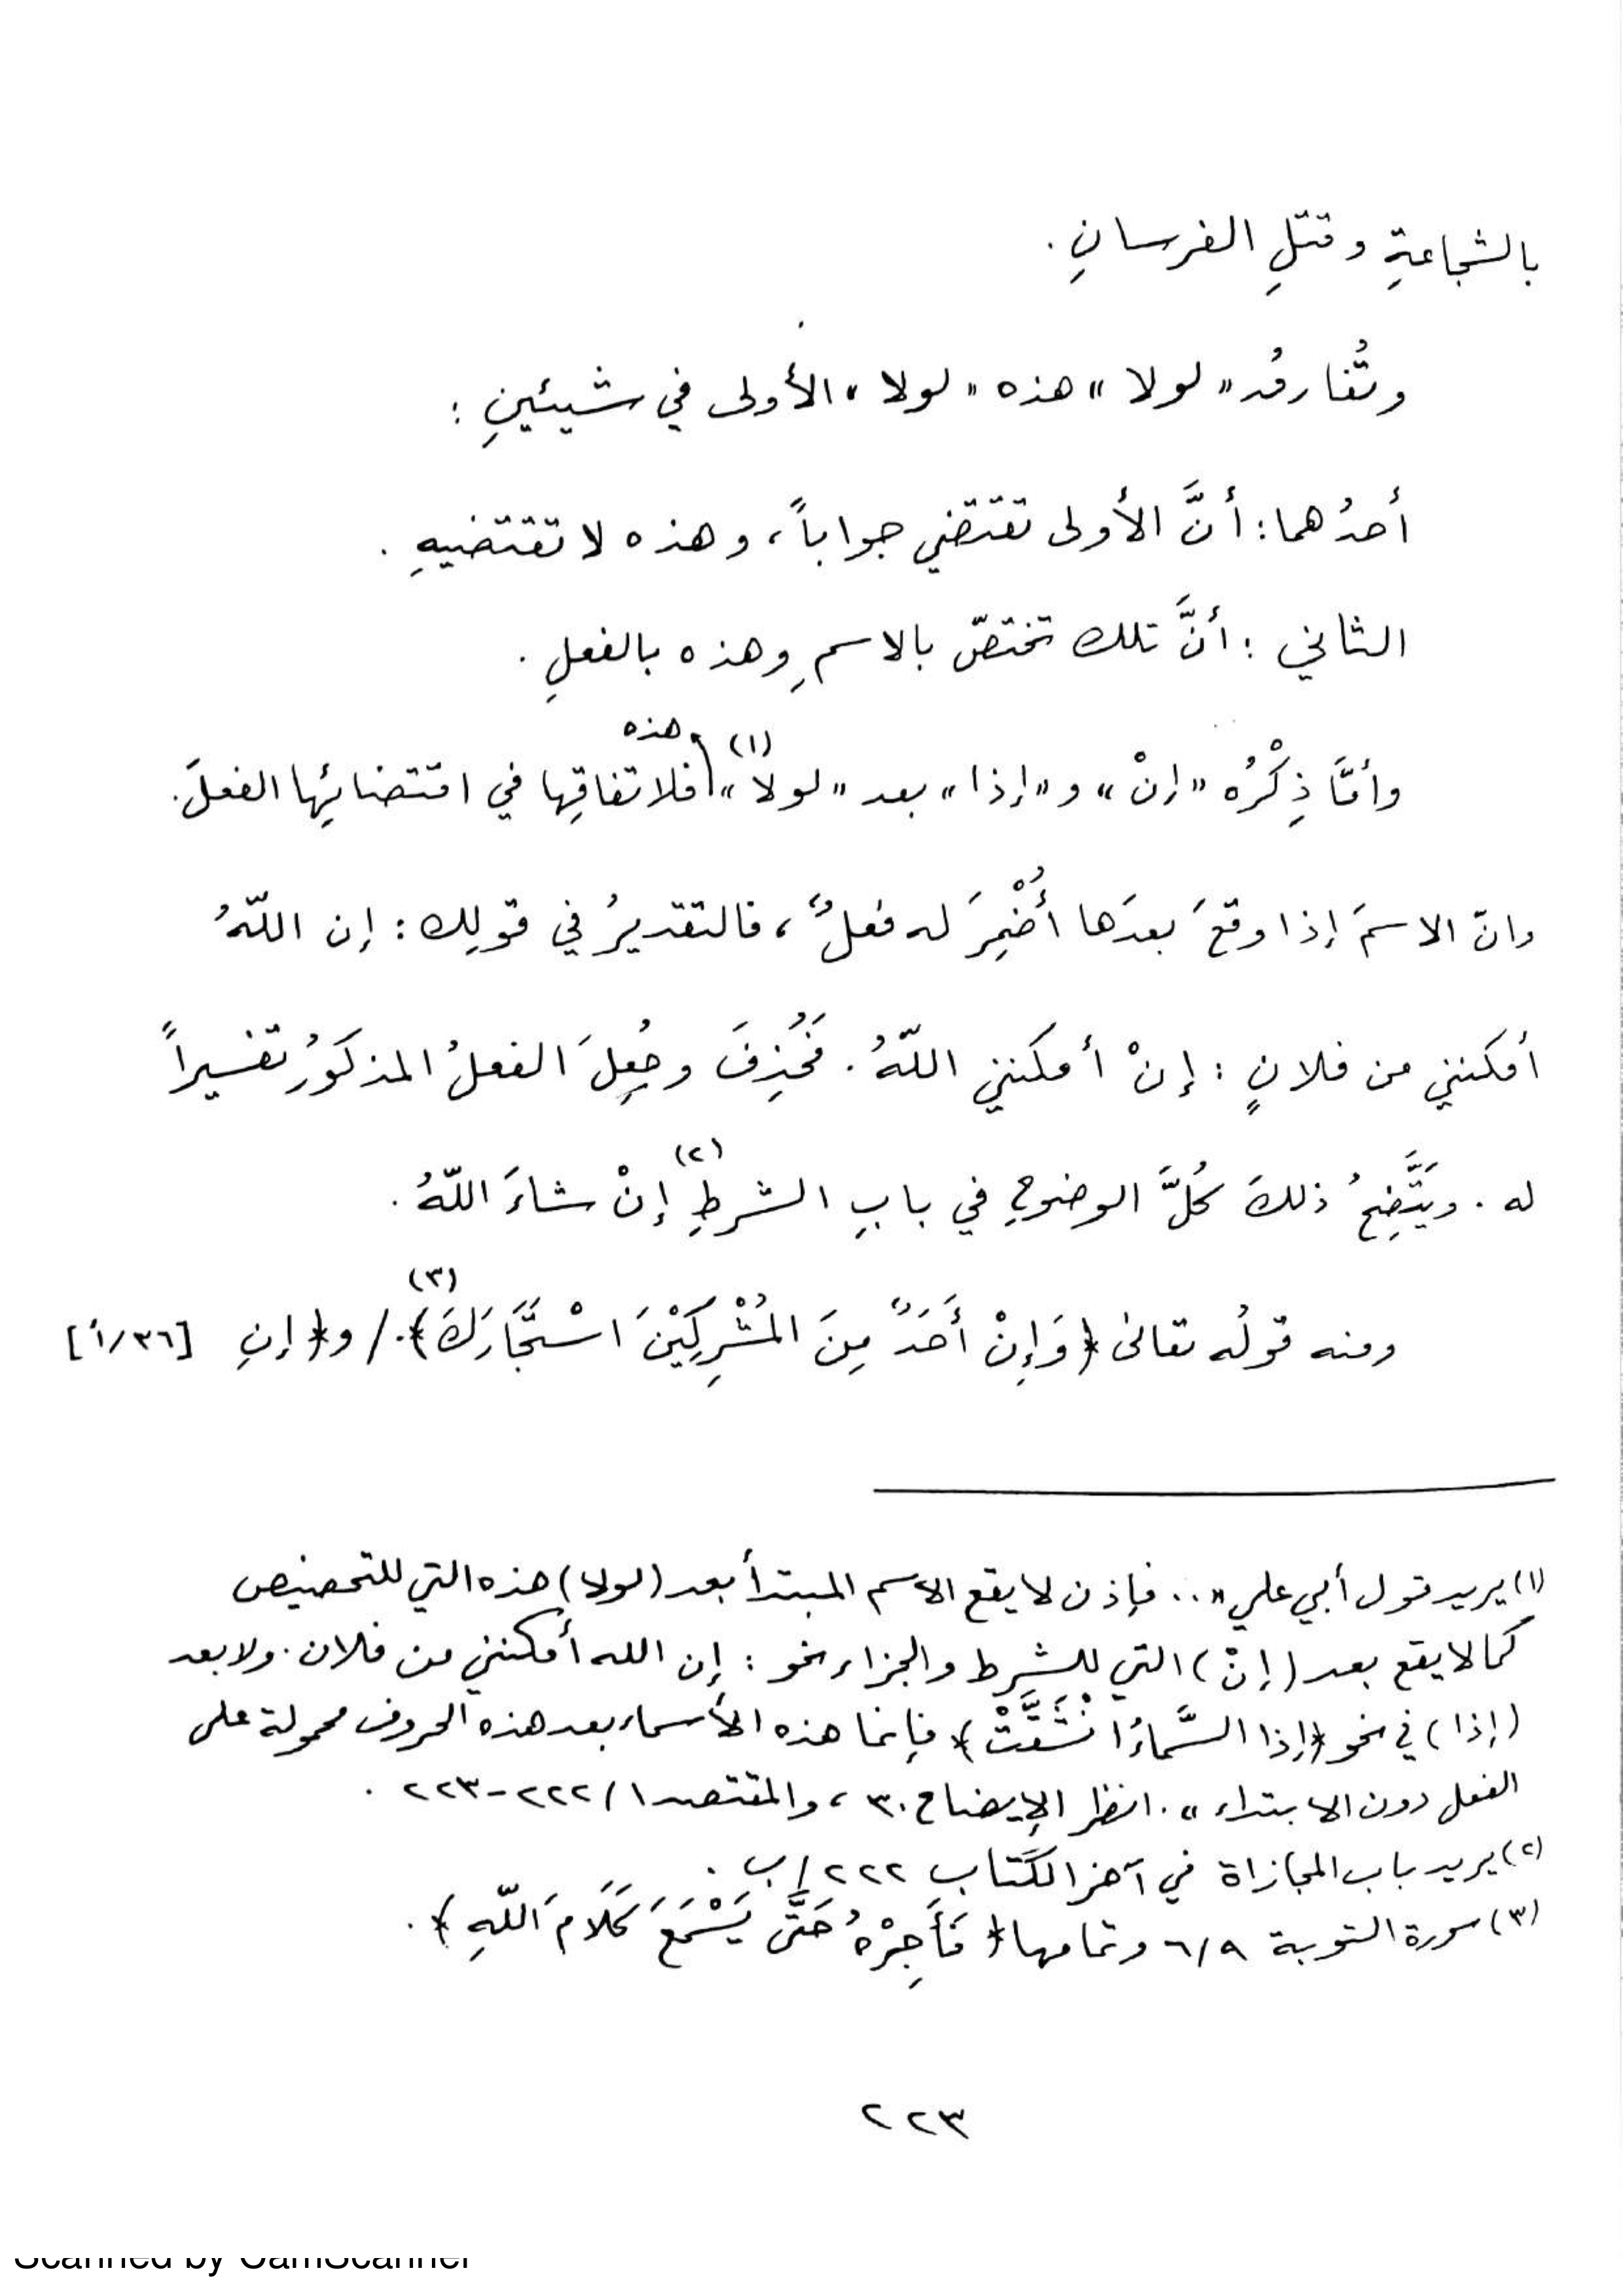 بالشجاعةِ وقتلِ الفرسانِ .
وتُفارقُ « لولا » هذه « لولا » الأُولى في شيئينِ :
أحدُهما : أنَّ الأُولى تقتضي جواباً ، وهذه لا تقتضيهِ .
الثاني : أنَّ تلك تختصّ بالاسمِ وهذه بالفعلِ .
وأمَّا ذِكْرُه « إنْ » و « إذا » بعد « لولا » (١) وهذه فلاتفاقِها في اقتضائِها الفعلَ .
وانّ الاسمَ إذا وقعَ بعدَها أُضْمِرَ له فعلٌ ، فالتقديرُ في قولِك : إن اللّهُ
أمكنني من فلانٍ : إنْ أمكنني اللّهُ . فَحُذِفَ وجُعِلَ الفعلُ المذكورُ تفسيراً
له . ويَتَّضِحُ ذلكَ كُلَّ الوضوحِ في بابِ الشرطِ (٢) إنْ شاءَ اللّهُ .
ومنه قولُه تعالى ﴿وَإِنْ أَحَدٌ مِنَ المُشْرِكِيْنَ اسْتَجَارَكَ﴾ (٣) . / و﴿إنِ [٣٦/أ]
(١) يريد قول أبي علي « .. فإذن لا يقع الاسم المبتدأ بعد (لولا) هذه التي للتحضيض
كما لا يقع بعد (إنْ) التي للشرط والجزاء نحو : إن الله أمكنني من فلان . ولا بعد
(إذا) في نحو ﴿إذا السَّماءُ انْشَقَّتْ﴾ فإنما هذه الأسماء بعد هذه الحروف محمولة على
الفعل دون الابتداء » . انظر الإيضاح ٣٠ ، والمقتصد ١/ ٢٢٢-٢٢٣ .
(٢) يريد باب المجازاة في آخر الكتاب ٢٢٢/ب .
(٣) سورة التوبة ٩/٦ وتمامها ﴿فَأَجِرْهُ حَتَّى يَسْمَعَ كَلَامَ اللّهِ﴾ .
٢٢٣
Scanned by CamScanner